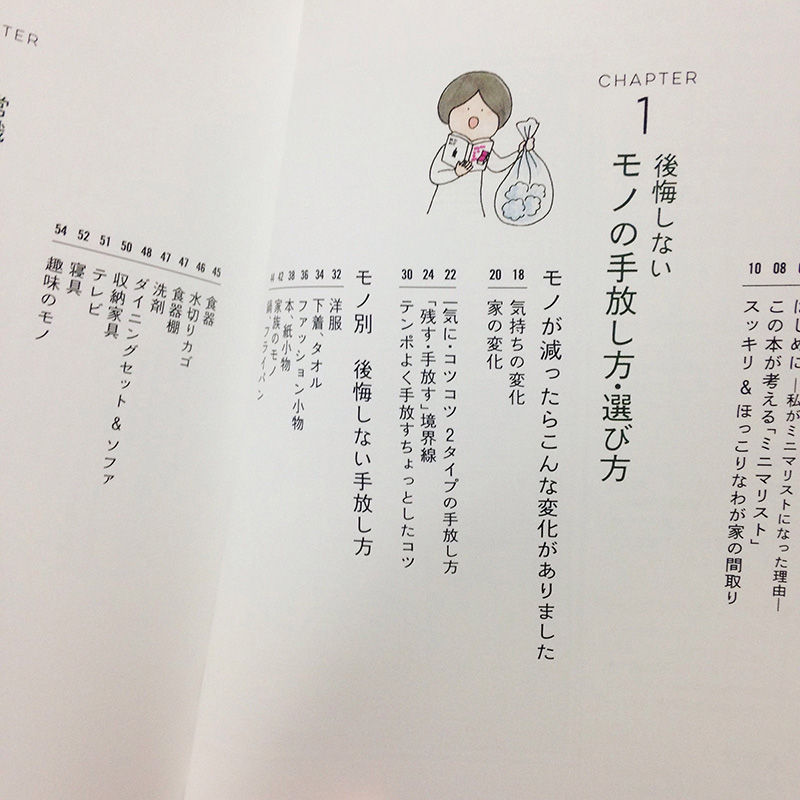 はじめに —私がミニマリストになった理由—
08 この本が考える「ミニマリスト」
10 スッキリ & ほっこりなわが家の間取り
CHAPTER
1
後悔しない
モノの手放し方・選び方
モノが減ったらこんな変化がありました
18 気持ちの変化
20 家の変化
22 一気に・コツコツ 2タイプの手放し方
24 「残す・手放す」境界線
30 テンポよく手放すちょっとしたコツ
モノ別 後悔しない手放し方
32 洋服
34 下着、タオル
36 ファッション小物
38 本、紙小物
42 家族のモノ
44 鍋、フライパン
45 食器
46 水切りカゴ
47 食器棚
47 洗剤
48 ダイニングセット & ソファ
50 収納家具
51 テレビ
52 寝具
54 趣味のモノ
TER